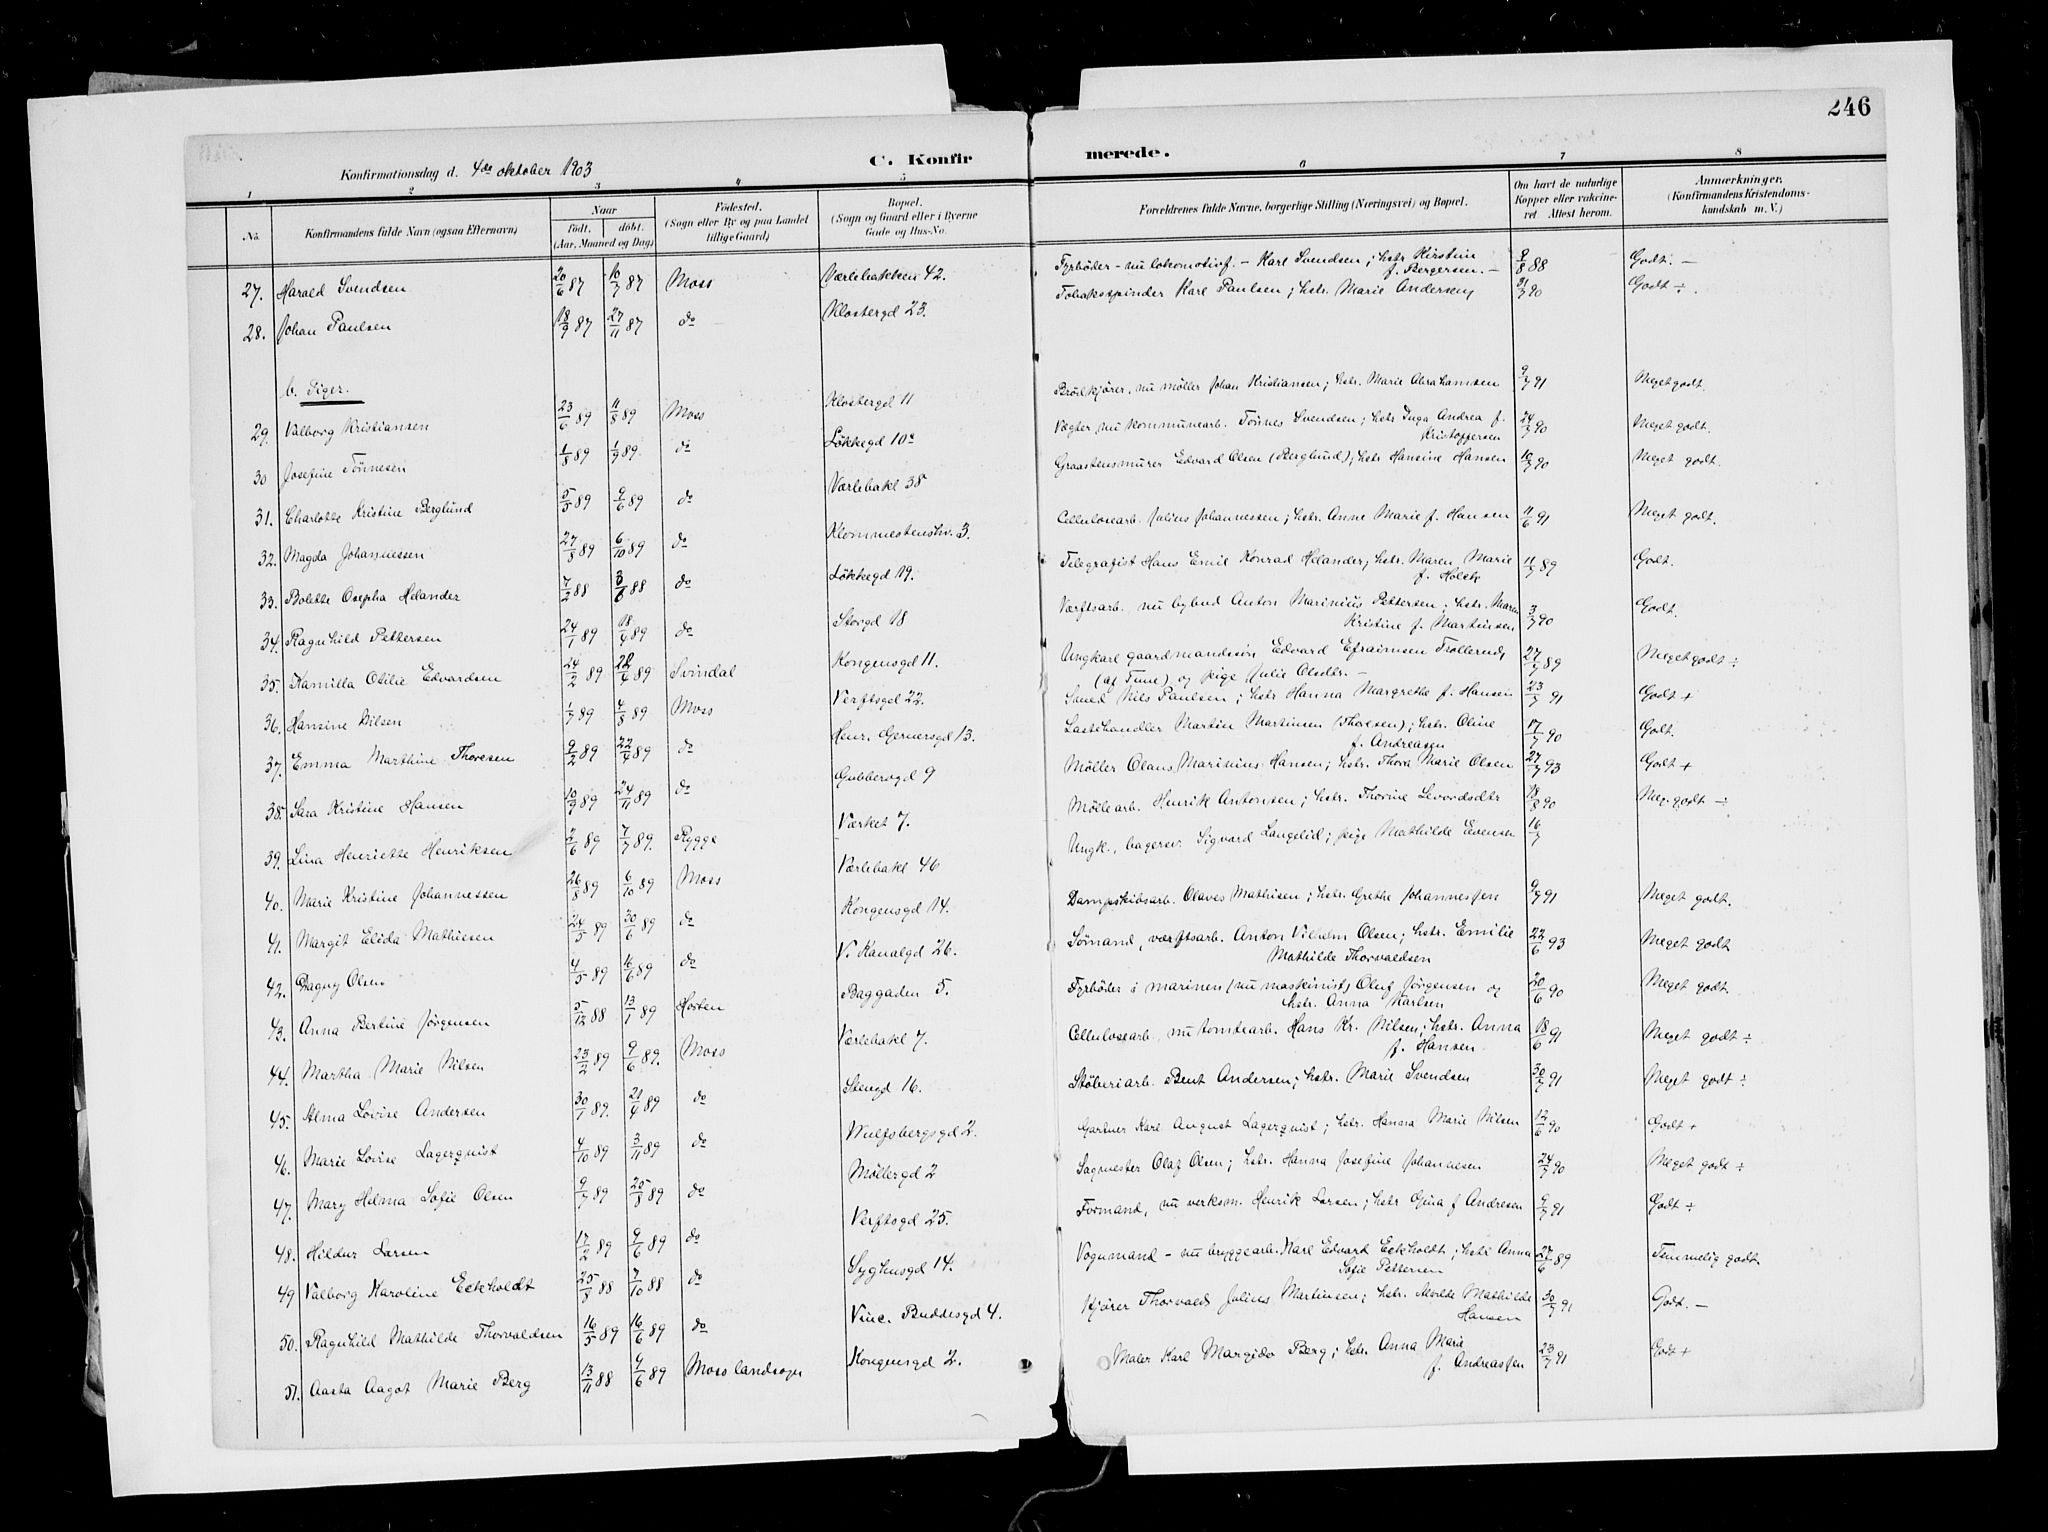 246
Konfirmationsdag d. 4de oktober 1903
C. Konfirmerede.
1 2 3 4 5 6 7 8
No.
Konfirmandens fulde Navn (ogsaa Efternavn)
Naar født. døbt. (Aar, Maaned og Dag)
Fødested. (Sogn eller By og paa Landet tillige Gaard)
Bopæl. (Sogn og Gaard eller i Byerne Gade og Hus-No.
Forældrenes fulde Navne, borgerlige Stilling (Næringsvei) og Bopæl.
Om havt de naturlige Kopper eller vaccineret Attest herom.
Anmærkninger. (Konfirmandens Kristendomskundskab m. V.)
27. Harald Svendsen 20/6 87 10/7 87 Moss Værlebakken 42. Fyrbøder - nu lokomotivf. - Karl Svendsen; hstr Kirstine f. Bergersen. - 9/8 88 Godt. -
28. Johan Paulsen 18/9 87 27/11 87 do Klostergd 23. Tobakspinder Karl Paulsen; hstr. Marie Andersen 31/7 90 Godt ÷.
b. Piger.
29. Valborg Kristiansen 23/6 89 11/8 89 Moss Klostergd 11 Brødkjører, nu møller Johan Kristiansen; hstr. Marie Abrahamsen 9/7 91 Meget godt.
30 Josefine Tønnesen 1/8 89 1/9 89. do Løkkegd 10a Vægter, nu kommunearb. Tønnes Svendsen; hstr Inga Andrea f. Kristoffersen 24/7 90 Meget godt.
31. Charlotte Kristine Berglund 5/5 89 9/6 89 do Værlebakl 38 Graastensmurer Edvard Olsen (Berglund); hstr Hansine Hansen 10/7 90 Meget godt.
32. Magda Johannessen 27/8 89 6/10 89 do Klommestenshv. 3. Cellulosearb. Julius Johannessen; hstr. Anne Marie f. Hansen 11/6 91 Meget godt.
33. Bolette Osepha Helander 7/2 88 3/6 88 do Løkkegd 19. Telegrafist Hans Emil Konrad Helander; hstr. Maren Marie f. Holck 11/7 89 Godt.
34. Ragnhild Pettersen 24/1 89 18/4 89 do Storgd 18 Værftsarb. nu bybud Anton Marinius Pettersen; hstr. Maren Kristine f. Martinsen 3/7 90 Godt.
35. Kamilla Otilie Edvardsen 24/2 89 28/4 89 Svindal Kongensgd 11. Ungkarl gaardmandssøn Edvard Efraimsen Trollerud (af Tune) og pige Julie Olsdtr. - 27/7 89 Meget godt ÷
36. Hansine Nilsen 1/7 89 4/8 89 Moss Verftsgd 22. Smed Nils Paulsen; hstr Hanna Margrethe f. Hansen 23/7 91 Godt +
37. Emma Marthine Thoresen 9/2 89 22/4 89 do Henr. Gernersgd 13. Lastehandler Martin Martinsen (Thoresen); hstr. Oline f. Andreasen 17/7 90 Godt.
38. Sara Kristine Hansen 10/9 89 24/11 89 do Gubberogd 9 Møller Olaus Marinius Hansen; hstr. Thora Marie Olsen 27/7 93 Godt +
39. Lina Henriette Henriksen 2/6 89 7/7 89. Rygge Værket 7. Møllearb. Henrik Antonsen; hstr. Thorine Levordsdtr 18/8 90 Meg. godt ÷
40. Marie Kristine Johannessen 26/8 89 6/10 89 Moss Værlebakl 46 Ungk., bagersv. Sigvard Langelid; pige Mathilde Evensen 16/7
41. Margit Elida Mathisen 24/5 89 30/6 89 do Kongensgd 14. Dampskibsarb. Olaves Mathisen; hstr. Grethe Johannessen 9/7 91 Meget godt.
42. Dagny Olsen 4/5 89 16/6 89 do V. Kanalgd 26. Sømand, værftsarb. Anton Vilhelm Olsen; hstr. Emilie Mathilde Thorvaldsen 22/6 93 Meget godt
43. Anna Bertine Jørgensen 5/12 88 13/1 89 Horten Baggaden 5. Fyrbøder i marinen (nu maskinist) Oluf Jørgensen og hstr. Anna Karlsen 20/6 90 Meget godt.
44. Martha Marie Nilsen 23/2 89 9/6 89. Moss Værlebakl 7. Cellulosearb., nu tomtearb. Hans Kr. Nilsen; hstr. Anna f. Hansen 18/6 91 Meget godt ÷
45. Alma Lovise Andersen 30/1 89. 21/4 89 do Stengd 16. Støberiarb. Bent Andersen; hstr. Marie Svendsen 30/7 91 Meget godt ÷
46. Marie Lovise Lagerquist 4/10 89 3/11 89 do Wulfsbergsgd 2. Gartner Karl August Lagerquist; hstr. Hanna Marie Nilsen 12/6 90 Godt +
47. Mary Helma Sofie Olsen 9/7 89 25/8 89 do Møllergd 2 Sagmester Olaf Olsen; hstr. Hanna Josefine Johannesen 24/7 90 Meget godt ÷
48. Hildur Larsen 17/2 89 9/6 89 do Verftsgd 25. Formand, nu verksm. Henrik Larsen; hstr Gina f Andresen 9/7 91 Godt ÷
49 Valborg Karoline Eckholdt 25/8 88 7/10 88 do Syghusgd 14. Vognmand - nu bryggearb. Karl Edvard Eckholdt; hstr Anna Sofie Pettersen 27/6 89 Temmelig godt.
50. Ragnhild Mathilde Thorvaldsen 16/5 89 16/6 89 do Vinc. Buddesgd 4. Kjører Thorvald Julius Martinsen; hstr. Alvilde Mathilde Hansen 30/7 91 Godt. -
51. Aasta Aagot Marie Berg 13/11 88 9/6 89 Moss landsogn Kongensgd 2. Maler Karl Margido Berg; hstr. Anna Marie f. Andreassen 23/7 91 Godt +